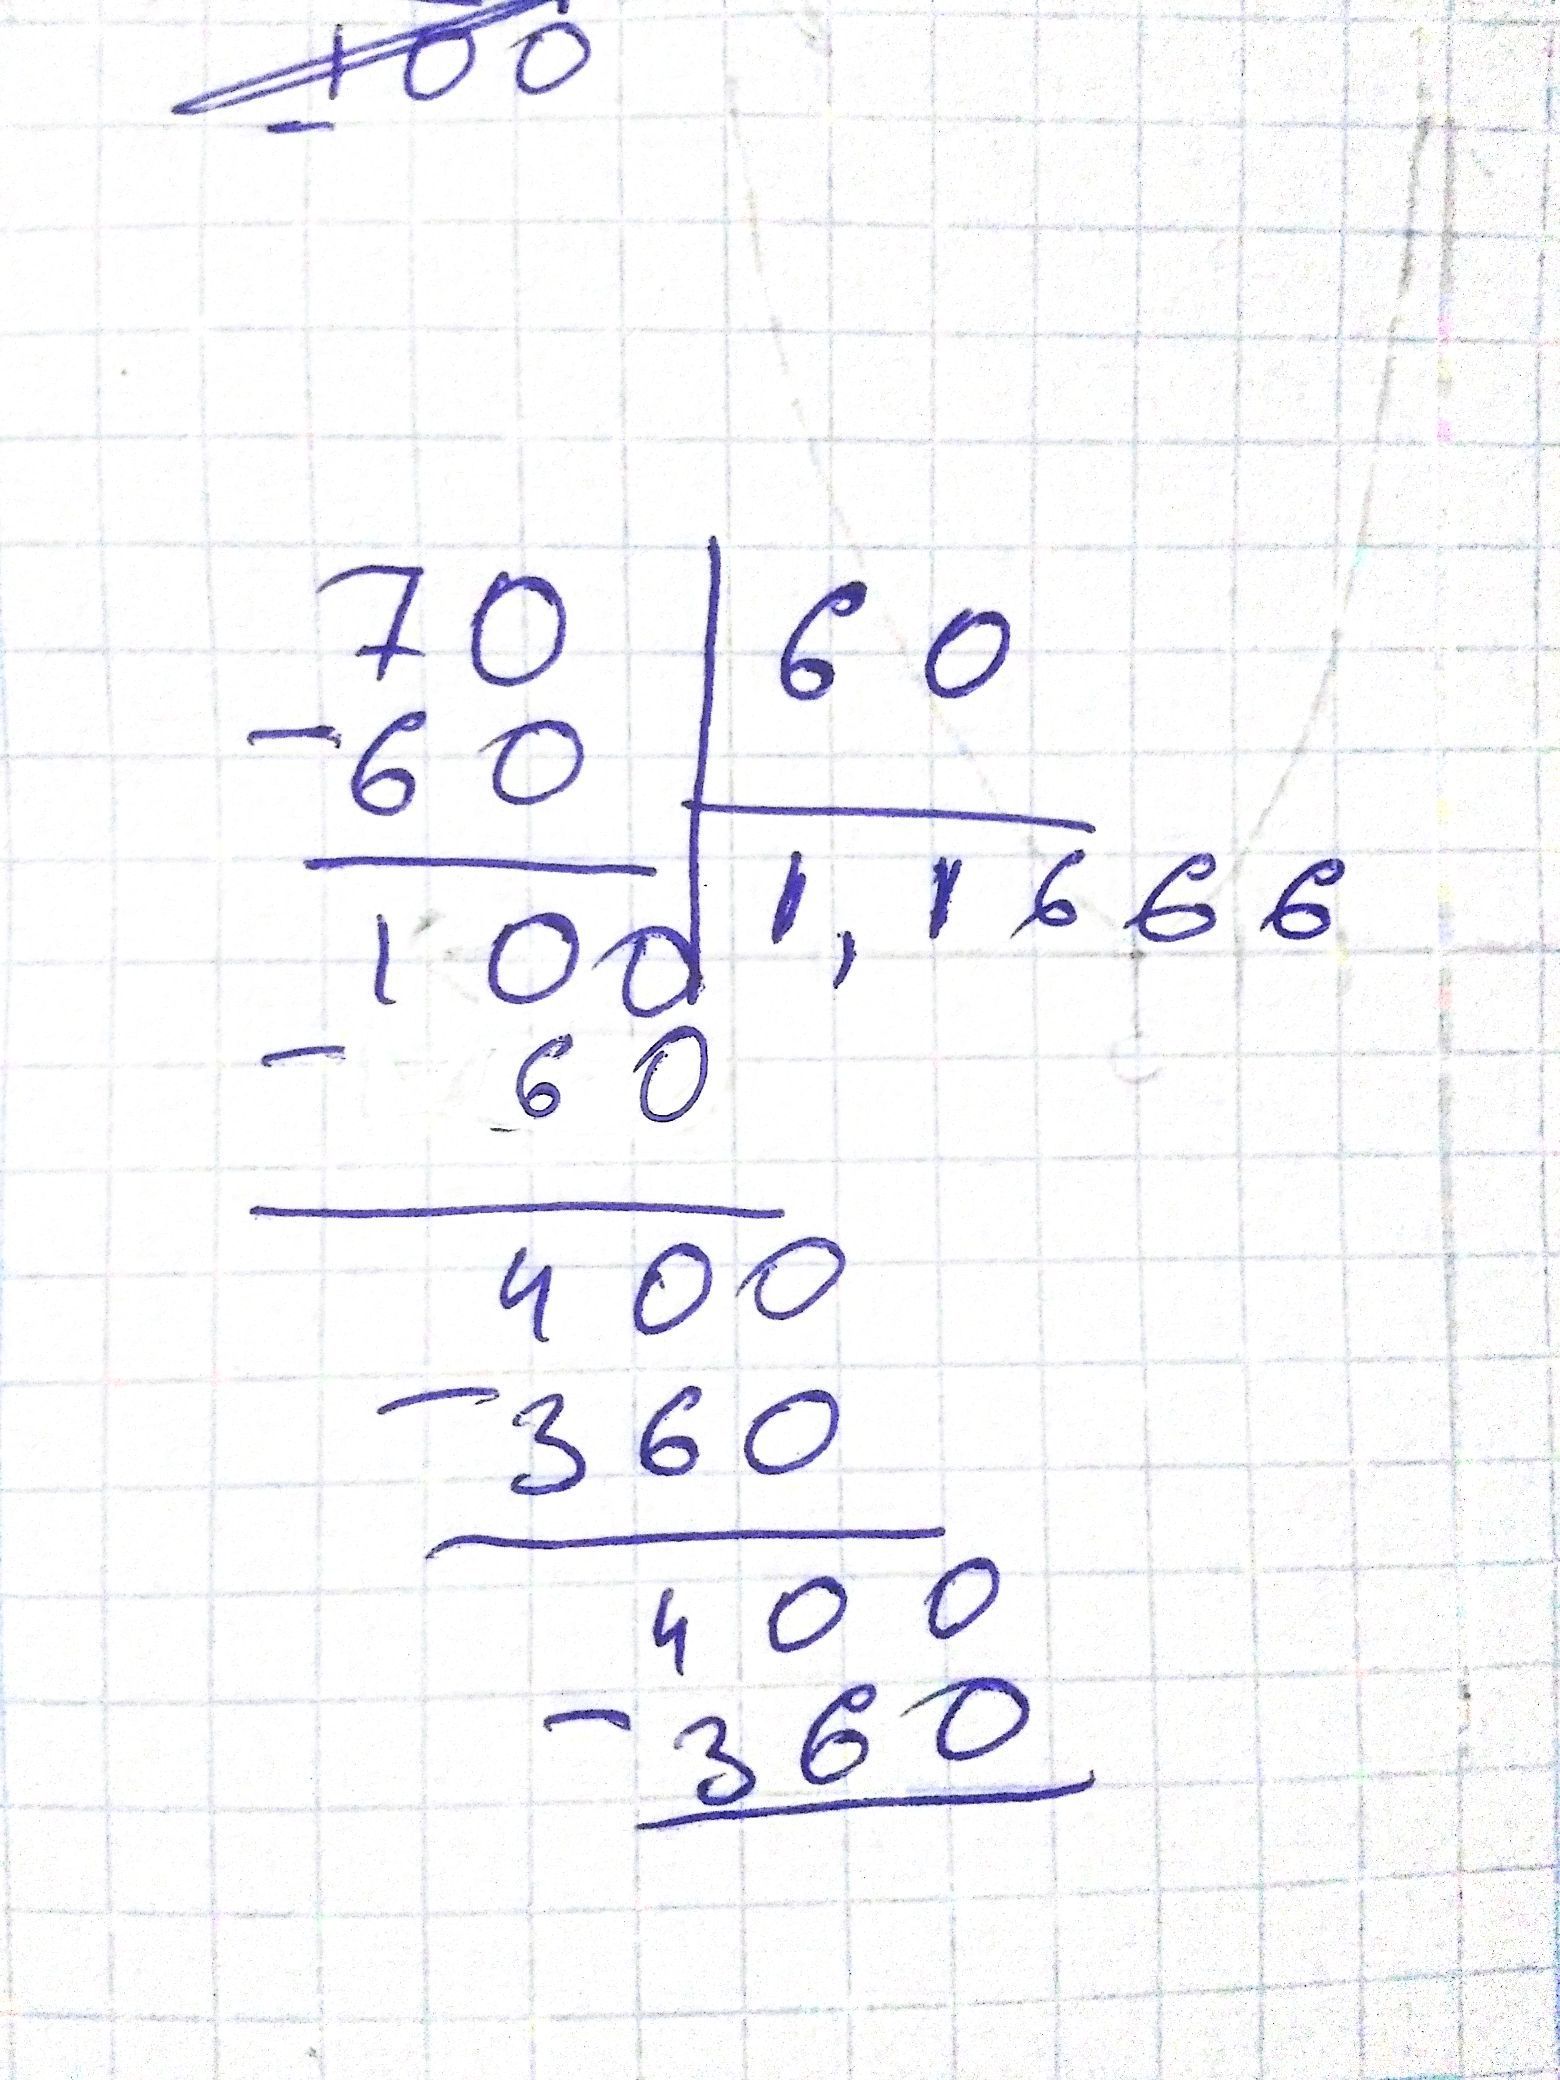 100
-
70 | 60
-60
1,1666
100
- 60
400
-360
400
-360